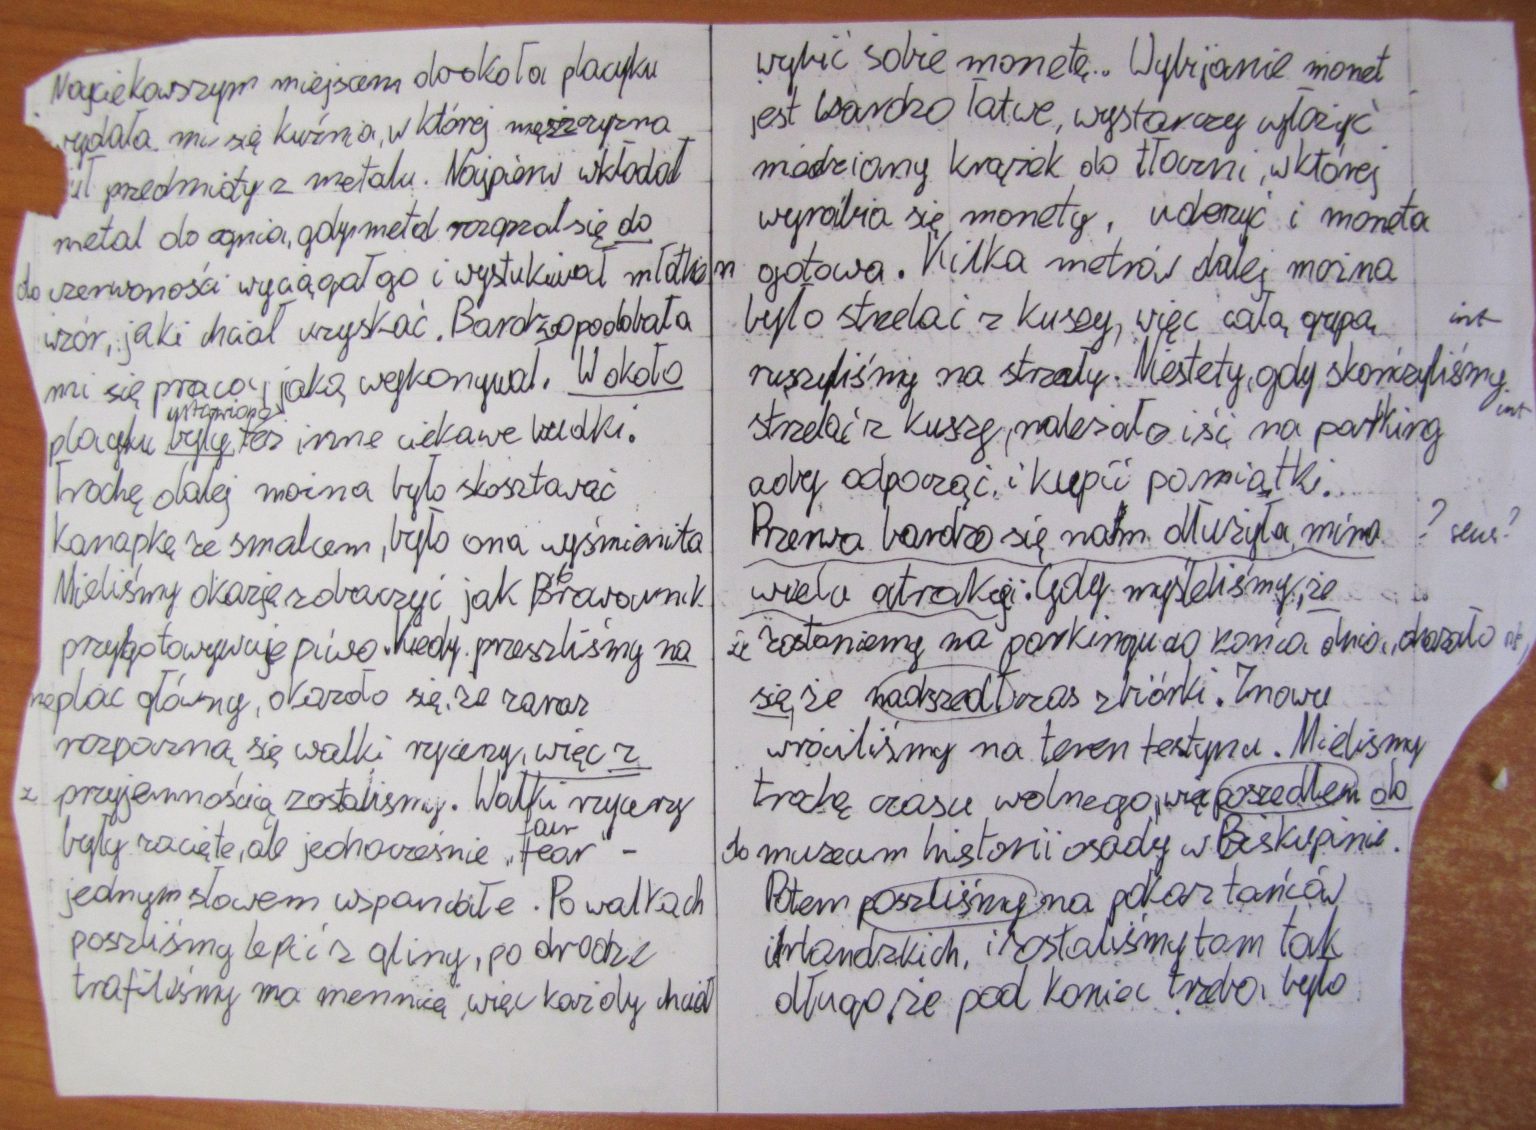 Najciekawszym miejscem dookoła placyku
wydała mi się kuźnia, w której mężczyzna
ył przedmioty z metalu. Najpierw wkładał
metal do ognia, gdy metal rozgrzał się do
do czerwoności wyciągał go i wystukiwał młotkiem
wzór, jaki chciał uzyskać. Bardzo podobała
mi się praca, jaką wykonywał. W około
ustawione
placyku były też inne ciekawe budki.
Trochę dalej można było skosztować
kanapkę ze smalcem, było ona wyśmienita
Mieliśmy okazję zobaczyć jak Browarnik
przygotowywuje piwo. Kiedy przeszliśmy na
na plac główny, okazało się, że zaraz
rozpoczną się walki rycerzy, więc z
z przyjemnością zostaliśmy. Walki rycerzy
fair
były zacięte, ale jednocześnie „fear" -
jednym słowem wspaniałe. Po walkach
poszliśmy lepić z gliny, po drodze
trafiliśmy na mennicę, więc każdy chciał
wybić sobie monetę.. Wybijanie monet
jest bardzo łatwe, wystarczy włożyć
miedziany krążek do tłoczni, w której
wyrabia się monety, uderzyć i moneta
gotowa. Kilka metrów dalej można
było strzelać z kuszy, więc całą grupą int
ruszyliśmy na strzały. Niestety, gdy skończyliśmy
int
strzelać z kuszy, należało iść na parking
aby odpocząć, i kupić pamiątki.
Przerwa bardzo się nam dłużyła, mimo ? sens?
wielu atrakcji. Gdy myśleliśmy, że
że zostaniemy na parkingu do końca dnia, okazało
się, że nadszedł czas zbiórki. Znowu
wróciliśmy na teren festynu. Mieliśmy
trochę czasu wolnego, więc poszedłem do
do muzeum historii osady w Biskupinie.
Potem poszliśmy na pokaz tańców
irlandzkich, i zostaliśmy tam tak
długo, że pod koniec trzeba było